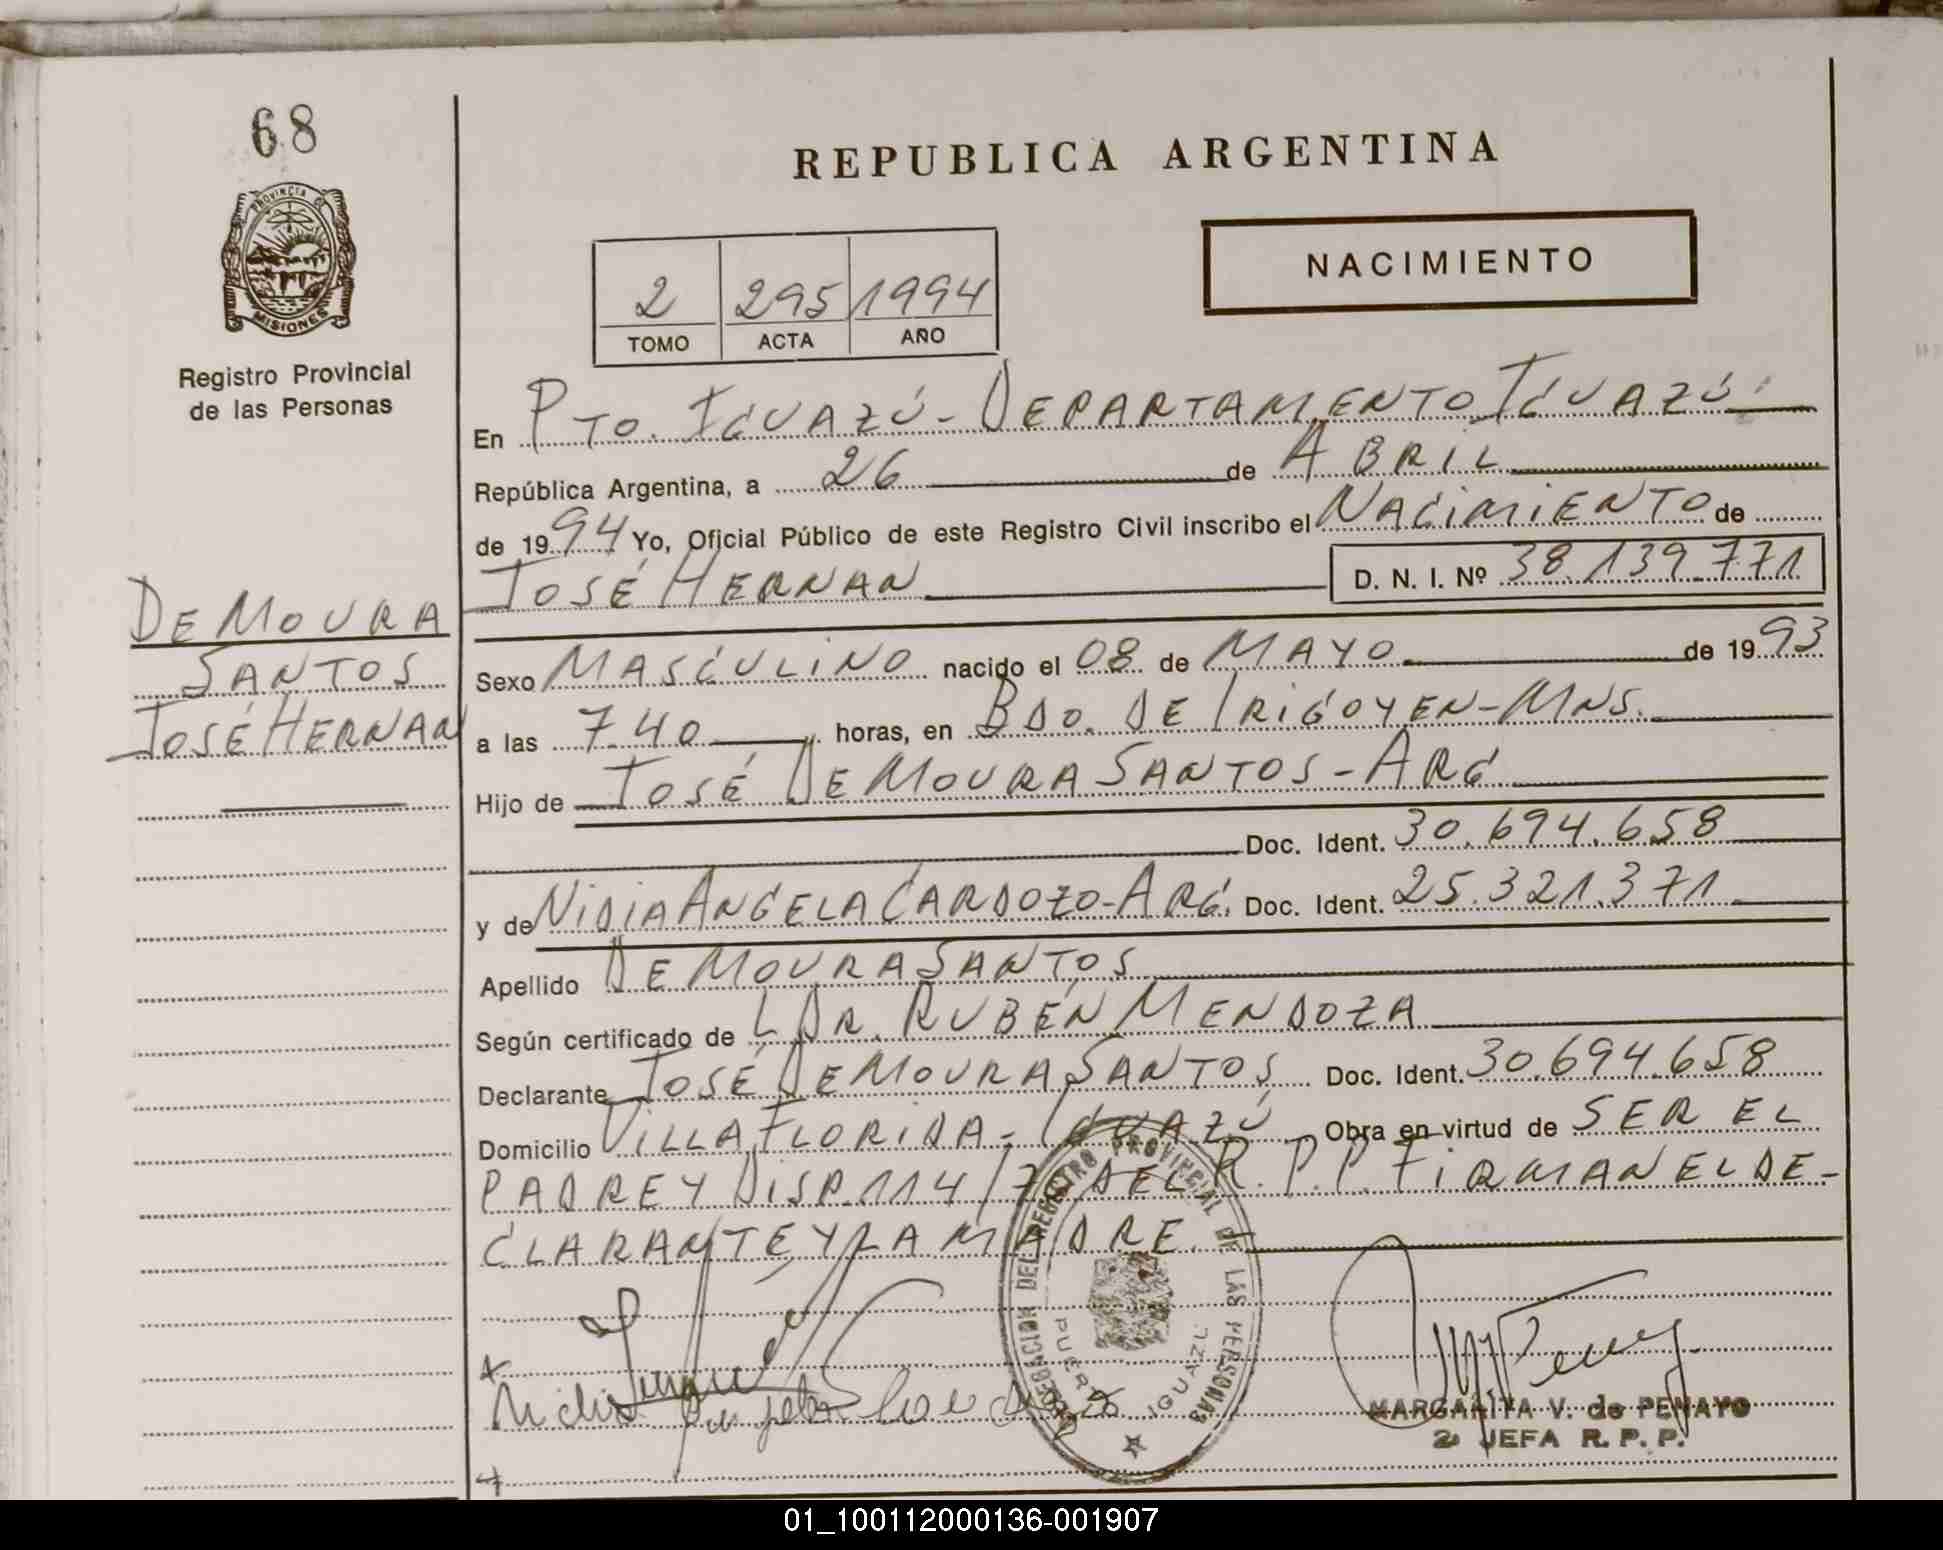 68
REPUBLICA ARGENTINA
PROVINCIA DE
MISIONES
Registro Provincial
de las Personas
2 295 1994
TOMO ACTA AÑO
NACIMIENTO
En PTO. IGUAZÚ - DEPARTAMENTO IGUAZÚ
República Argentina, a 26 de ABRIL
de 1994 Yo, Oficial Público de este Registro Civil inscribo el NACIMIENTO de
JOSÉ HERNAN D. N. I. Nº 38.139.771
DE MOURA
SANTOS
JOSÉ HERNAN
Sexo MASCULINO nacido el 08 de MAYO de 1993
a las 7.40 horas, en BDO. DE IRIGOYEN - MNS.
Hijo de JOSÉ DE MOURA SANTOS - ARG
Doc. Ident. 30.694.658
y de NIDIA ANGELA CARDOZO - ARG. Doc. Ident. 25.321.371
Apellido DE MOURA SANTOS
Según certificado de DR. RUBÉN MENDOZA
Declarante JOSÉ DE MOURA SANTOS Doc. Ident. 30.694.658
Domicilio VILLA FLORIDA - IGUAZÚ Obra en virtud de SER EL
PADRE Y DISP. 114/ DEL R. P. P. FIRMAN EL DE-
CLARANTE Y LA MADRE.
DELEGACION DEL REGISTRO PROVINCIAL DE LAS PERSONAS
PUERTO IGUAZU
MARGARITA V. de PENAYO
2ª JEFA R. P. P.
01_100112000136-001907